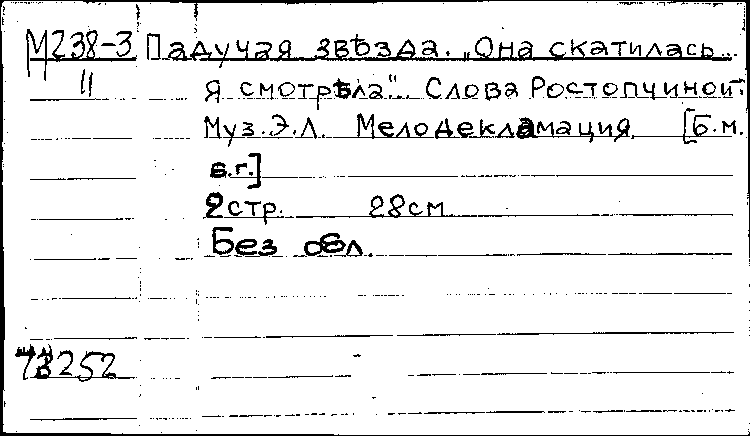 М238-3 Падучая звѣзда. „Она скатилась...
11 я смотрѣла"... Слова Ростопчиной.
Муз. Э.Л. Мелодекламация. [Б.м.
б.г.]
2 стр. 28 см
Без обл.
252